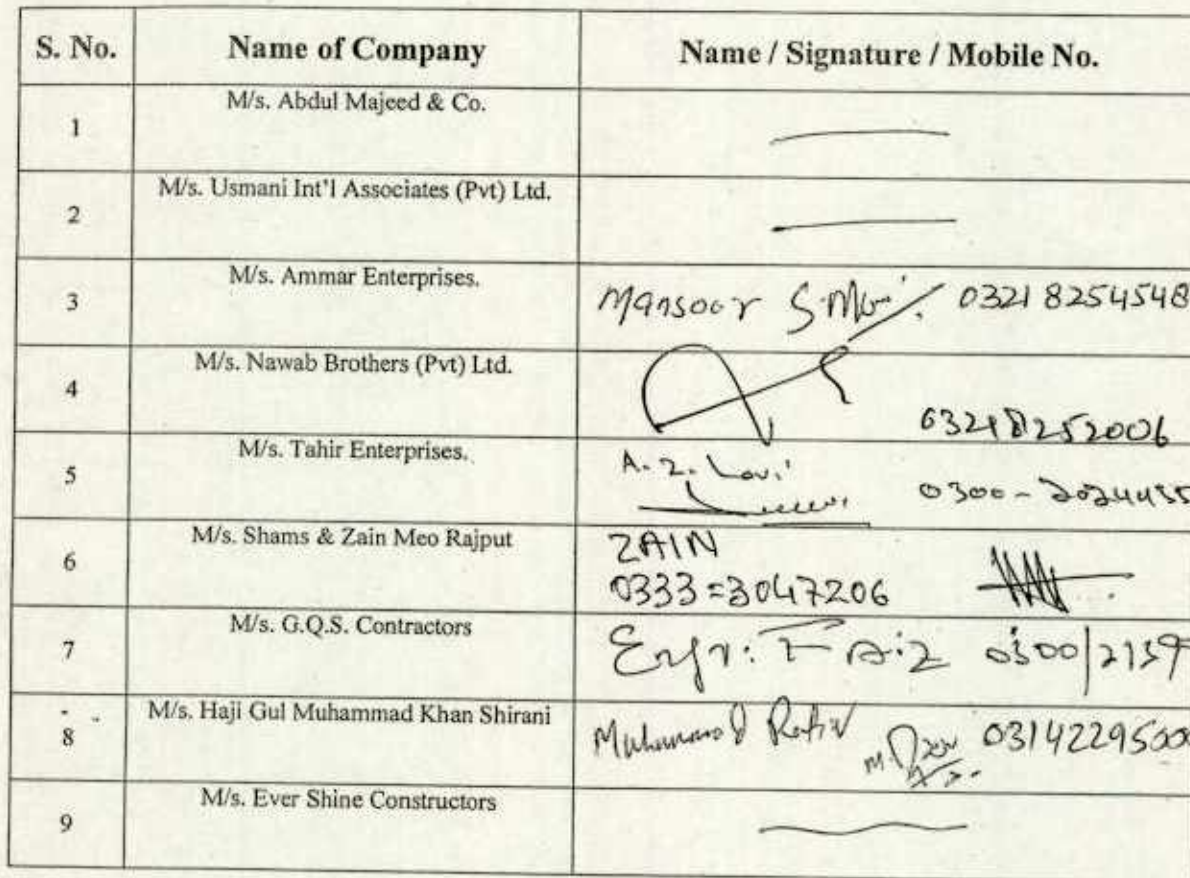 S. No. Name of Company Name / Signature / Mobile No.
1 M/s. Abdul Majeed & Co.
2 M/s. Usmani Int'l Associates (Pvt) Ltd.
3 M/s. Ammar Enterprises. Mansoor 0321 8254548
4 M/s. Nawab Brothers (Pvt) Ltd. 03218252006
5 M/s. Tahir Enterprises. A. Z.
6 M/s. Shams & Zain Meo Rajput ZAIN
0333=3047206
7 M/s. G.Q.S. Contractors Engr: Faiz 0300/2139
8 M/s. Haji Gul Muhammad Khan Shirani Muhammad 0314229500
9 M/s. Ever Shine Constructors